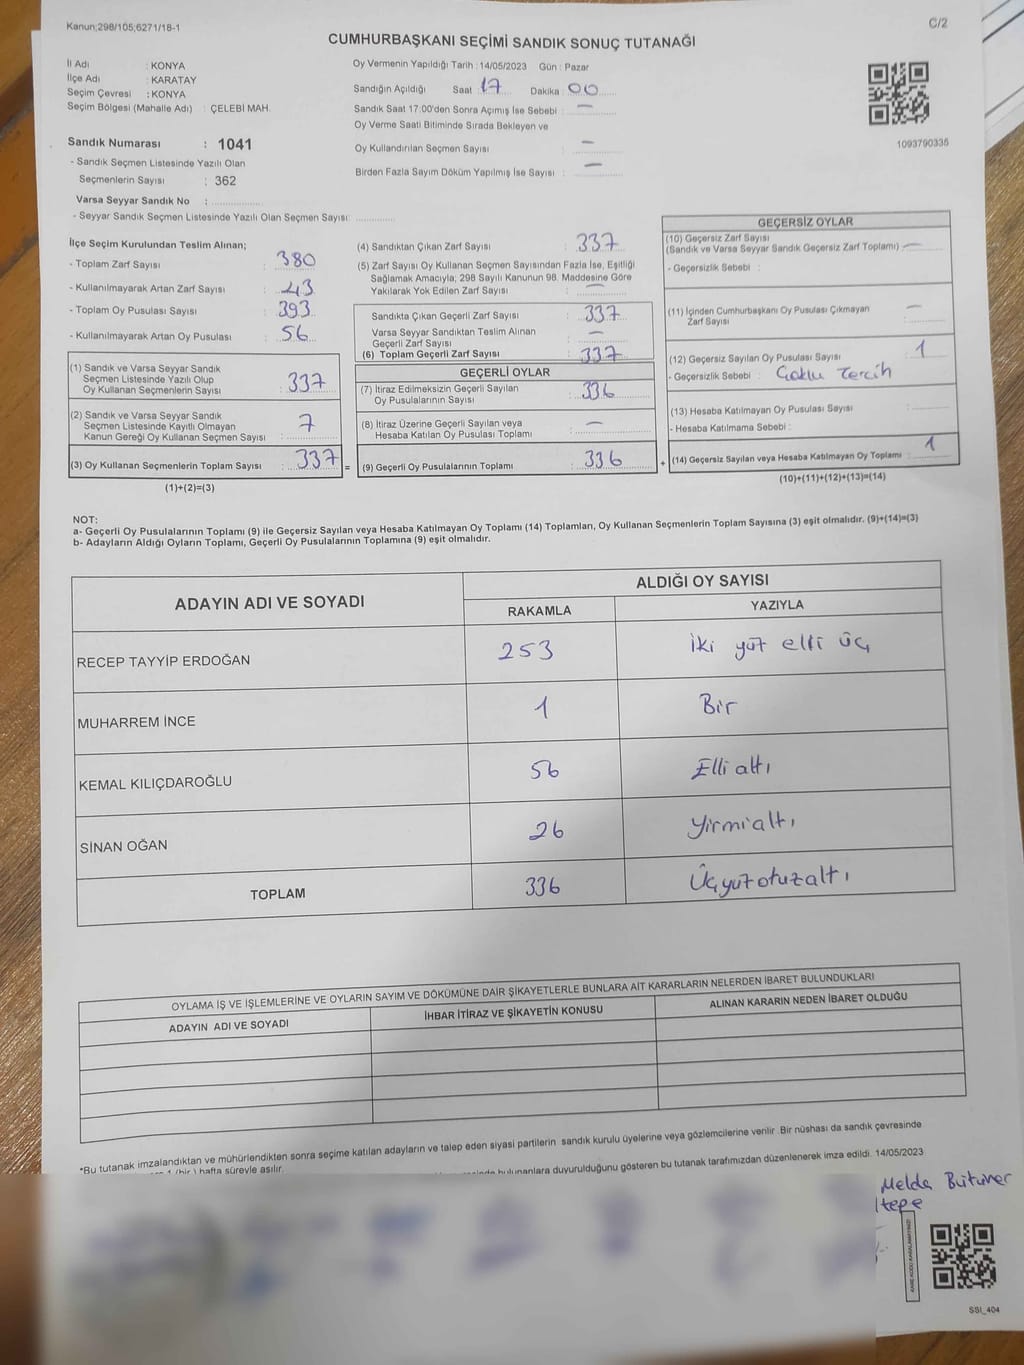 Kanun;298/105;6271/18-1
C/2
CUMHURBAŞKANI SEÇİMİ SANDIK SONUÇ TUTANAĞI
İl Adı : KONYA
İlçe Adı : KARATAY
Seçim Çevresi : KONYA
Seçim Bölgesi (Mahalle Adı) : ÇELEBİ MAH.
Sandık Numarası : 1041
- Sandık Seçmen Listesinde Yazılı Olan
Seçmenlerin Sayısı : 362
Varsa Seyyar Sandık No :
- Seyyar Sandık Seçmen Listesinde Yazılı Olan Seçmen Sayısı:
Oy Vermenin Yapıldığı Tarih : 14/05/2023 Gün : Pazar
Sandığın Açıldığı Saat : 17 Dakika : 00
Sandık Saat 17:00'den Sonra Açımış İse Sebebi : —
Oy Verme Saati Bitiminde Sırada Bekleyen ve
Oy Kullandırılan Seçmen Sayısı : —
Birden Fazla Sayım Döküm Yapılmış İse Sayısı : —
1093790335
İlçe Seçim Kurulundan Teslim Alınan;
- Toplam Zarf Sayısı : 380
- Kullanılmayarak Artan Zarf Sayısı : 43
- Toplam Oy Pusulası Sayısı : 393
- Kullanılmayarak Artan Oy Pusulası : 56
(1) Sandık ve Varsa Seyyar Sandık
Seçmen Listesinde Yazılı Olup
Oy Kullanan Seçmenlerin Sayısı : 337
(2) Sandık ve Varsa Seyyar Sandık
Seçmen Listesinde Kayıtlı Olmayan
Kanun Gereği Oy Kullanan Seçmen Sayısı : 7
(3) Oy Kullanan Seçmenlerin Toplam Sayısı : 337 =
(1)+(2)=(3)
(4) Sandıktan Çıkan Zarf Sayısı : 337
(5) Zarf Sayısı Oy Kullanan Seçmen Sayısından Fazla İse, Eşitliği
Sağlamak Amacıyla; 298 Sayılı Kanunun 98. Maddesine Göre
Yakılarak Yok Edilen Zarf Sayısı : —
Sandıkta Çıkan Geçerli Zarf Sayısı : 337
Varsa Seyyar Sandıktan Teslim Alınan
Geçerli Zarf Sayısı : —
(6) Toplam Geçerli Zarf Sayısı : 337
GEÇERLİ OYLAR
(7) İtiraz Edilmeksizin Geçerli Sayılan
Oy Pusulalarının Sayısı : 336
(8) İtiraz Üzerine Geçerli Sayılan veya
Hesaba Katılan Oy Pusulası Toplamı : —
(9) Geçerli Oy Pusulalarının Toplamı : 336 +
GEÇERSİZ OYLAR
(10) Geçersiz Zarf Sayısı
(Sandık ve Varsa Seyyar Sandık Geçersiz Zarf Toplamı) : —
- Geçersizlik Sebebi :
(11) İçinden Cumhurbaşkanı Oy Pusulası Çıkmayan
Zarf Sayısı : —
(12) Geçersiz Sayılan Oy Pusulası Sayısı : 1
- Geçersizlik Sebebi : Çoklu Tercih
(13) Hesaba Katılmayan Oy Pusulası Sayısı :
- Hesaba Katılmama Sebebi :
(14) Geçersiz Sayılan veya Hesaba Katılmayan Oy Toplamı : 1
(10)+(11)+(12)+(13)=(14)
NOT:
a- Geçerli Oy Pusulalarının Toplamı (9) ile Geçersiz Sayılan veya Hesaba Katılmayan Oy Toplamı (14) Toplamları, Oy Kullanan Seçmenlerin Toplam Sayısına (3) eşit olmalıdır. (9)+(14)=(3)
b- Adayların Aldığı Oyların Toplamı, Geçerli Oy Pusulalarının Toplamına (9) eşit olmalıdır.
ADAYIN ADI VE SOYADI
ALDIĞI OY SAYISI
RAKAMLA YAZIYLA
RECEP TAYYİP ERDOĞAN 253 İki yüz elli üç
MUHARREM İNCE 1 Bir
KEMAL KILIÇDAROĞLU 56 Elli altı
SİNAN OĞAN 26 Yirmialtı
TOPLAM 336 Üçyüzotuzaltı
OYLAMA İŞ VE İŞLEMLERİNE VE OYLARIN SAYIM VE DÖKÜMÜNE DAİR ŞİKAYETLERLE BUNLARA AİT KARARLARIN NELERDEN İBARET BULUNDUKLARI
ADAYIN ADI VE SOYADI İHBAR İTİRAZ VE ŞİKAYETİN KONUSU ALINAN KARARIN NEDEN İBARET OLDUĞU
*Bu tutanak imzalandıktan ve mühürlendikten sonra seçime katılan adayların ve talep eden siyasi partilerin sandık kurulu üyelerine veya gözlemcilerine verilir. Bir nüshası da sandık çevresinde
1 (bir) hafta süreyle asılır.
bulunanlara duyurulduğunu gösteren bu tutanak tarafımızdan düzenlenerek imza edildi. 14/05/2023
Melda Bütüner
ltepe
KARE KODU KARALAMAYINIZ!
SSI_404